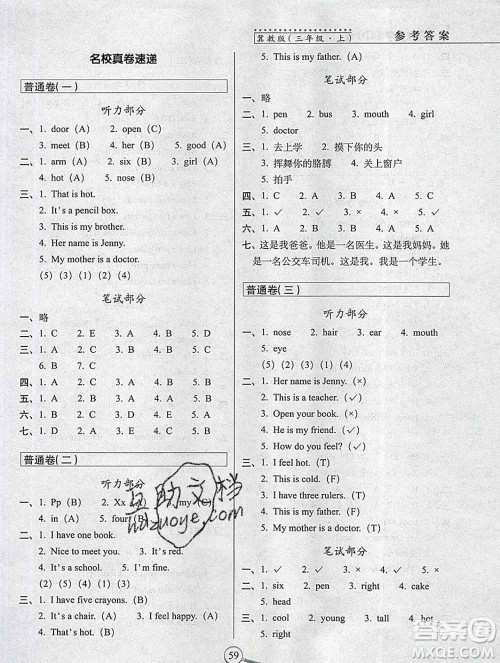 冀教版(三年级·上)
参考答案
名校真卷速递
普通卷(一)
听力部分
一、1. door (A) 2. open (C)
3. meet (B) 4. her (B) 5. good (A)
二、1. arm (A) 2. six (B) 3. girl (A)
4. hot (A) 5. nose (B)
三、1. That is hot.
2. It's a pencil box.
3. This is my brother.
4. Her name is Jenny.
5. My mother is a doctor.
(5) (3) (4) (2) (1)
笔试部分
一、略
二、1. C 2. E 3. A 4. B 5. D
三、1. C 2. A 3. A 4. B 5. C
6. B 7. C 8. A
四、1. A 2. A 3. A 4. B 5. A
五、1. A 2. B 3. B 4. A 5. B
六、1. D 2. C 3. A 4. E 5. B
普通卷(二)
听力部分
一、1. Pp (B) 2. Xx my (A)
4. in (A) 5. four (B)
二、1. I have one book.
2. Nice to meet you. 3. It's red.
4. This is a school. 5. I'm fine.
(2) (5) (4) (3) (1)
三、1. I have five crayons. (B)
2. It is a chair. (A) 3. I feel happy. (A)
4. That's hot. (B)
5. This is my father. (A)
笔试部分
一、略
二、1. pen 2. bus 3. mouth 4. girl
5. doctor
三、1. 去上学 2. 摸下你的头
3. 挥舞你的胳膊 4. 关上窗户
5. 拍手
四、1. C 2. B 3. A 4. B 5. A
五、1. ✓ 2. ✓ 3. × 4. × 5. ✓
六、1. A 2. B 3. A 4. A 5. C
七、这是我爸爸。他是一名医生。这是我妈妈。她
是一名公交车司机。这是我。我是一个学生。
普通卷(三)
听力部分
一、1. nose 2. hair 3. ear 4. mouth
5. eye
(5) (3) (1) (2) (4)
二、1. Her name is Jenny. (×)
2. This is a teacher. (✓)
3. Open your book. (×)
4. He is my friend. (✓)
5. How do you feel? (✓)
三、1. I feel hot. (T)
2. This is cold. (F)
3. I have three rulers. (T)
4. This is my mouth. (F)
5. My mother is a doctor. (T)
笔试部分
一、略
二、1. six 2. pen 3. right 4. cake
5. head
三、1. cool 2. young 3. tall 4. hot
5. right
互助文档
huzuoye.com
59
答案圈
MXQE.COM